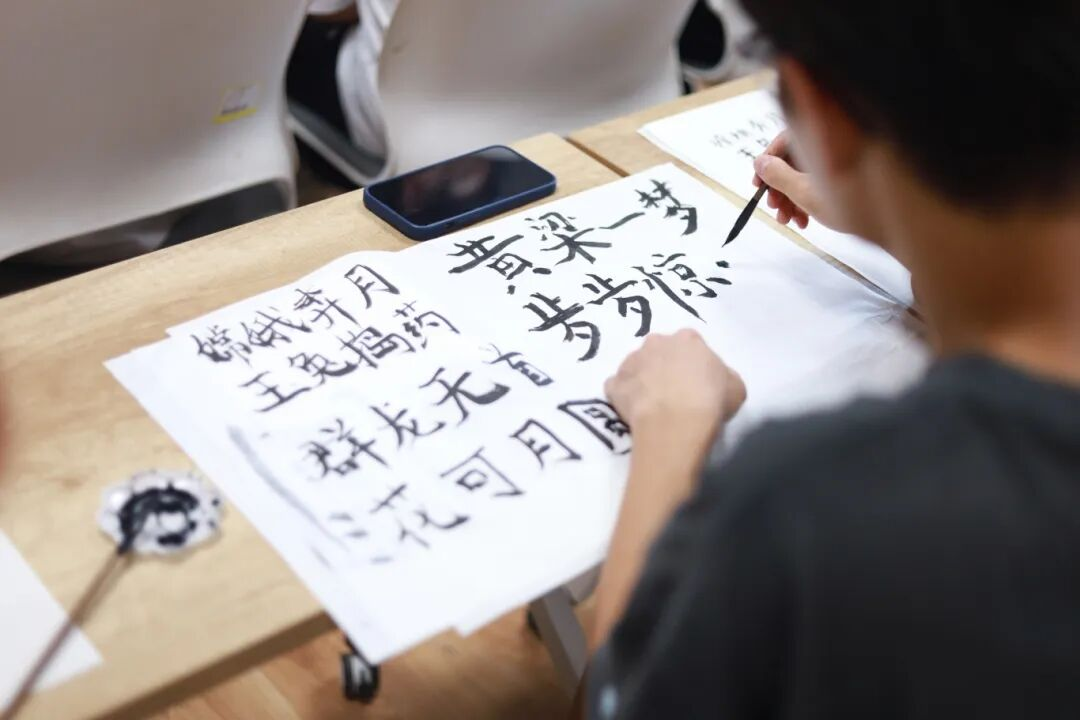 黄梁一梦
步步惊心
嫦娥奔月
玉兔捣药
群龙无首
花可月圆